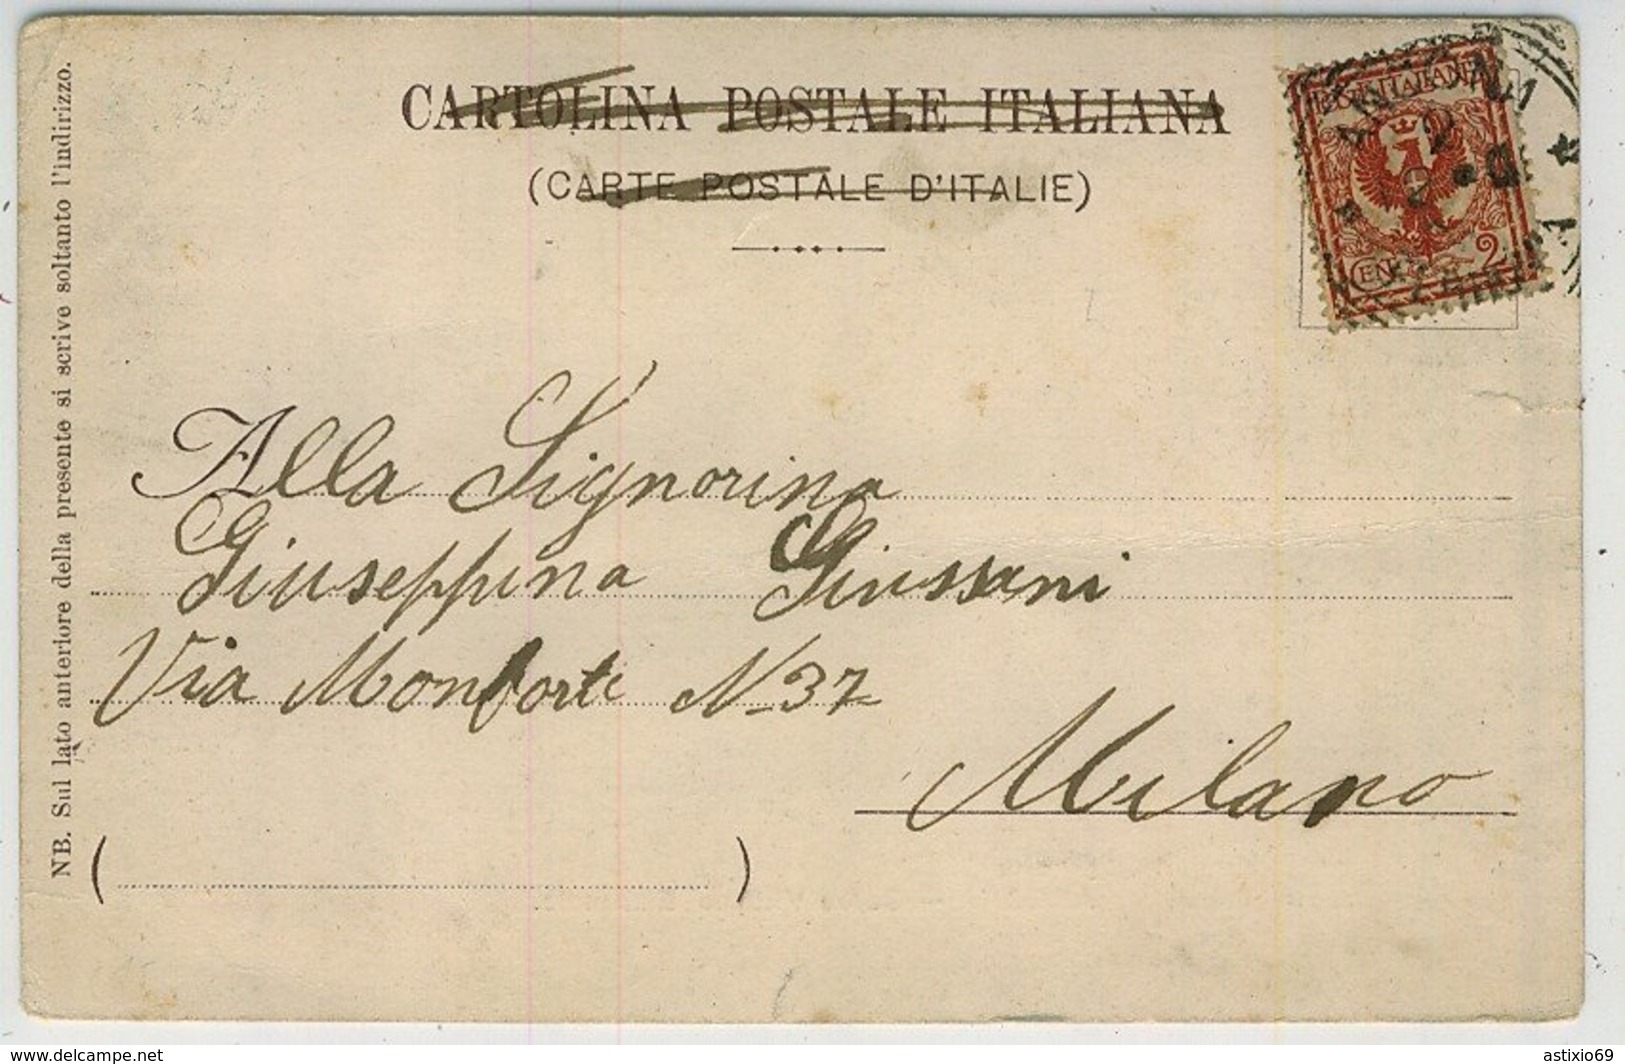 CARTOLINA POSTALE ITALIANA
(CARTE POSTALE D'ITALIE)
POSTE ITALIANE
CENT. 2
NB. Sul lato anteriore della presente si scrive soltanto l'indirizzo.
Alla Signorina
Giuseppina Giussani
Via Monforte N 37
Milano
(                    )
www.delcampe.net
astixio69